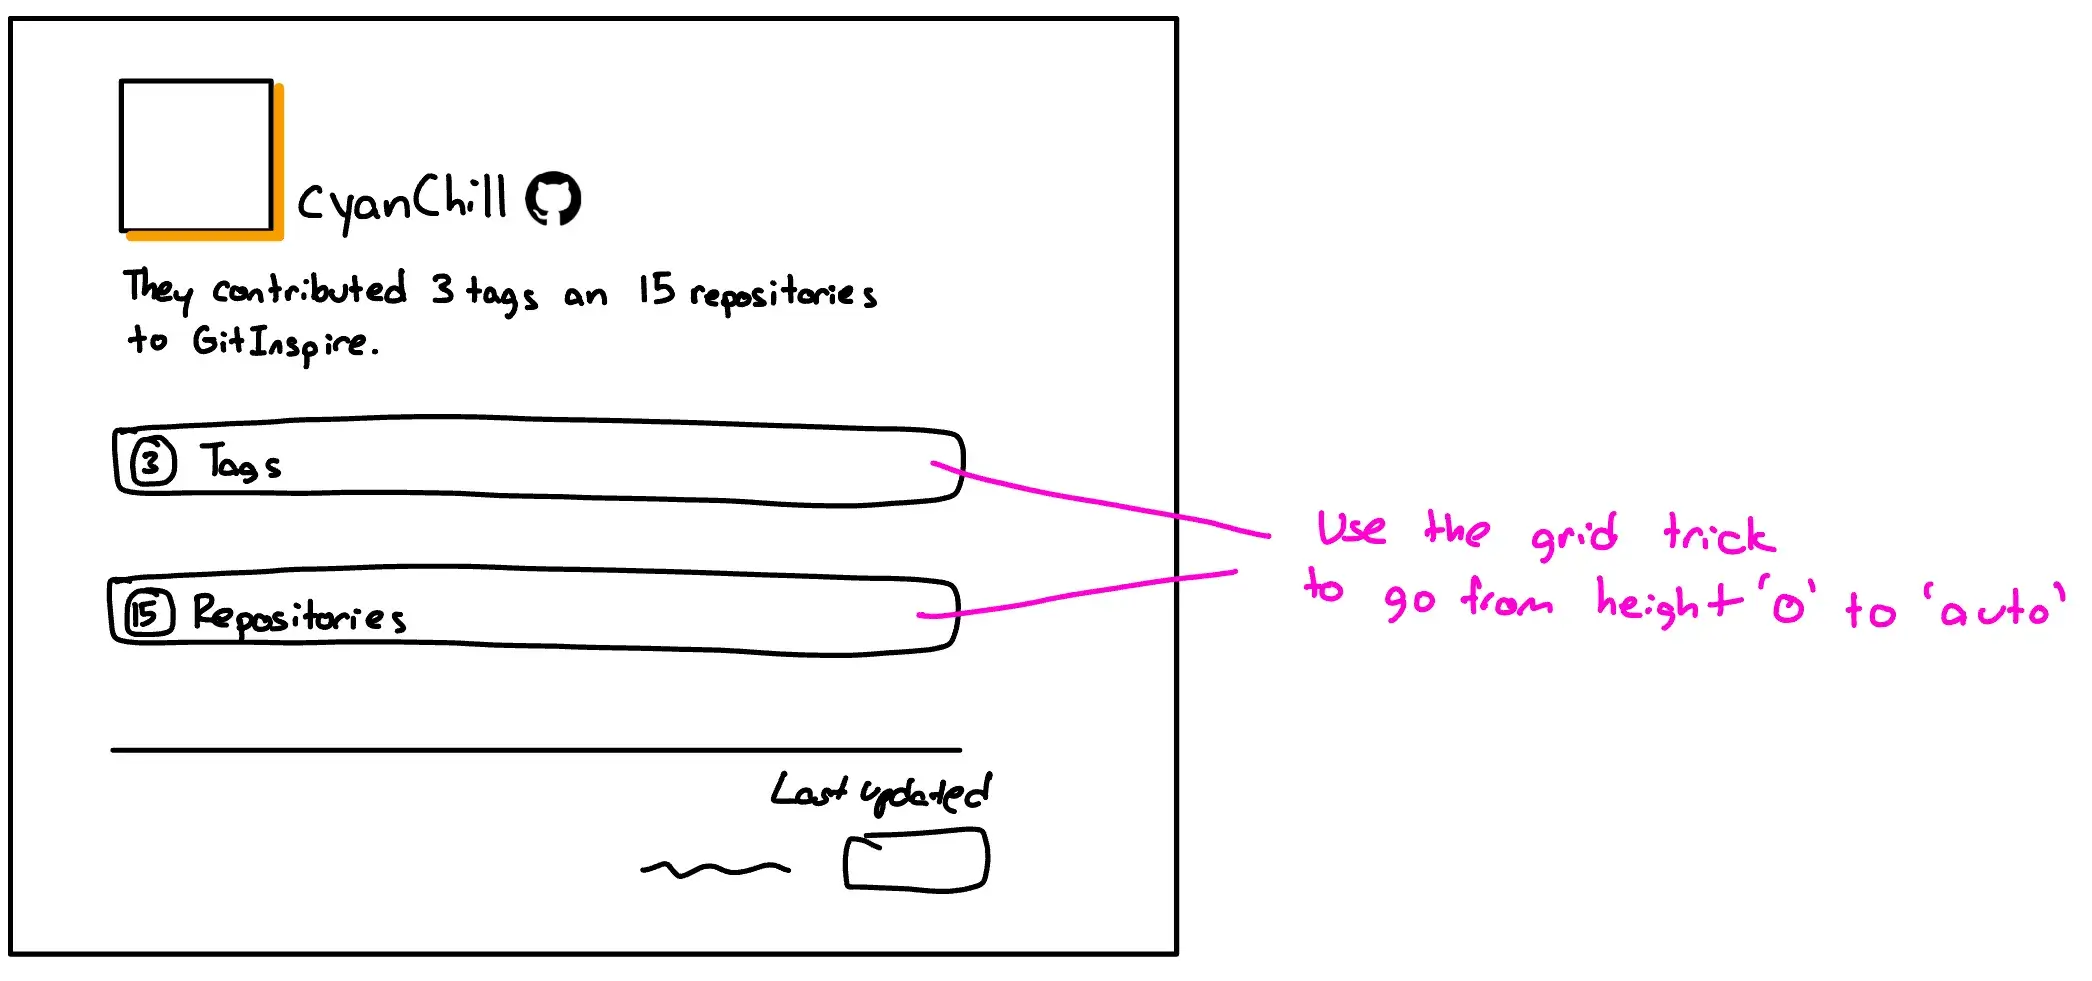 CyanChill
They contributed 3 tags an 15 repositories
to GitInspire.
3 Tags
15 Repositories
Last updated
Use the grid trick
to go from height '0' to 'auto'